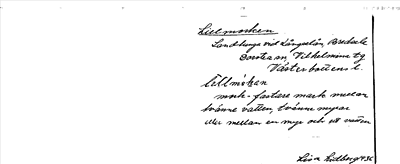 Lillmorken
Landunga vid Långselån, Bredsele
Dorotea sn, Vilhelmina tg
Västerbottens l.
lillmörkan
mork - fastare mark mellan
tvänne vatten, tvänne myrar
eller mellan en myr och ett vatten
Lisa Lidberg 1936